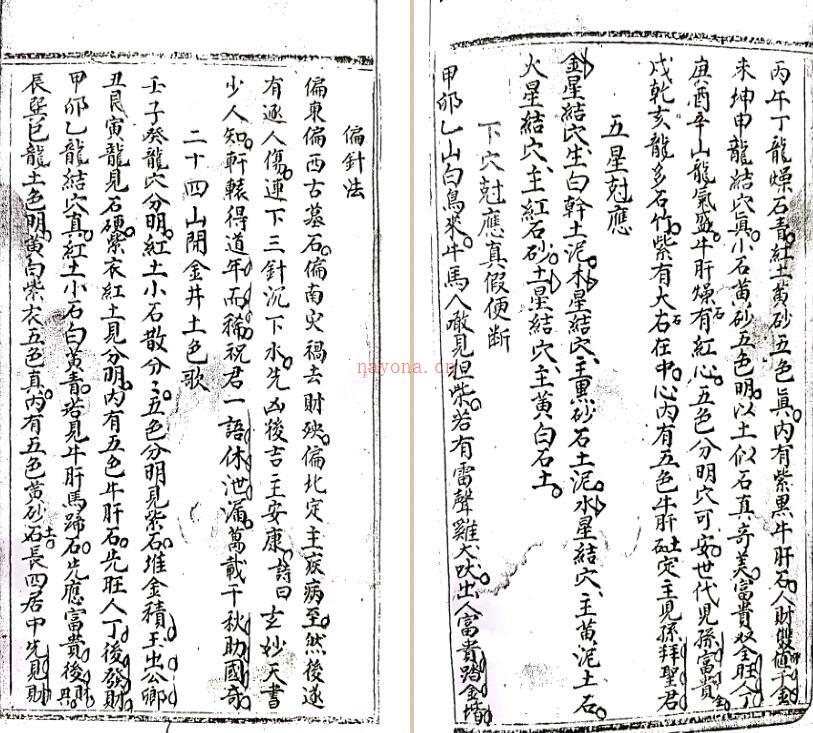 偏針法
偏東偏西古墓石。偏南火禍去財殃。偏北定主疾病至。然後逐
有逐人傷。連下三針沉下水。先凶後吉主安康。詩曰玄妙天書
少人知。軒轅得道年而稀。祝君一語休泄漏。萬載千秋助國奇
二十四山開金井土色歌
壬子癸龍穴分明。紅土小石散分々。五色分明見紫石。堆金積玉出公卿
丑艮寅龍見石硬。紫衣紅土見分明。内有五色牛肝石。先旺人丁後發財
甲卯乙龍結穴真。紅土小石白黃青。若見牛肝馬蹄石。先應富貴後財
辰巽巳龍土色明。黃白紫衣五色真。内有五色黃砂石土。長四居中先見財
丙午丁龍燥石青。紅土黃砂五色真。内有紫黑牛肝石。人財雙值千金
未坤申龍結穴真。小石黃砂五色明。以土似石真奇美。富貴双全旺人丁
庚酉辛山龍氣盛。牛肝燥石有紅心。五色分明穴可安。世代兒孫富貴金
戌乾亥龍多石竹。紫有大石在中。心内有五色牛肝土。定主見孫拜聖君
五星尅應
金星結穴、生白幹土泥。木星結穴、主黑砂石土泥。水星結穴、主黃泥土石。
火星結穴、主紅石砂。土星結穴、主黃白石土。
下穴尅應真假便断
甲卯乙山白鳥來。牛馬人敢見担柴。若有雷聲雞犬吠。出人富貴踏金堦
nayona.cn